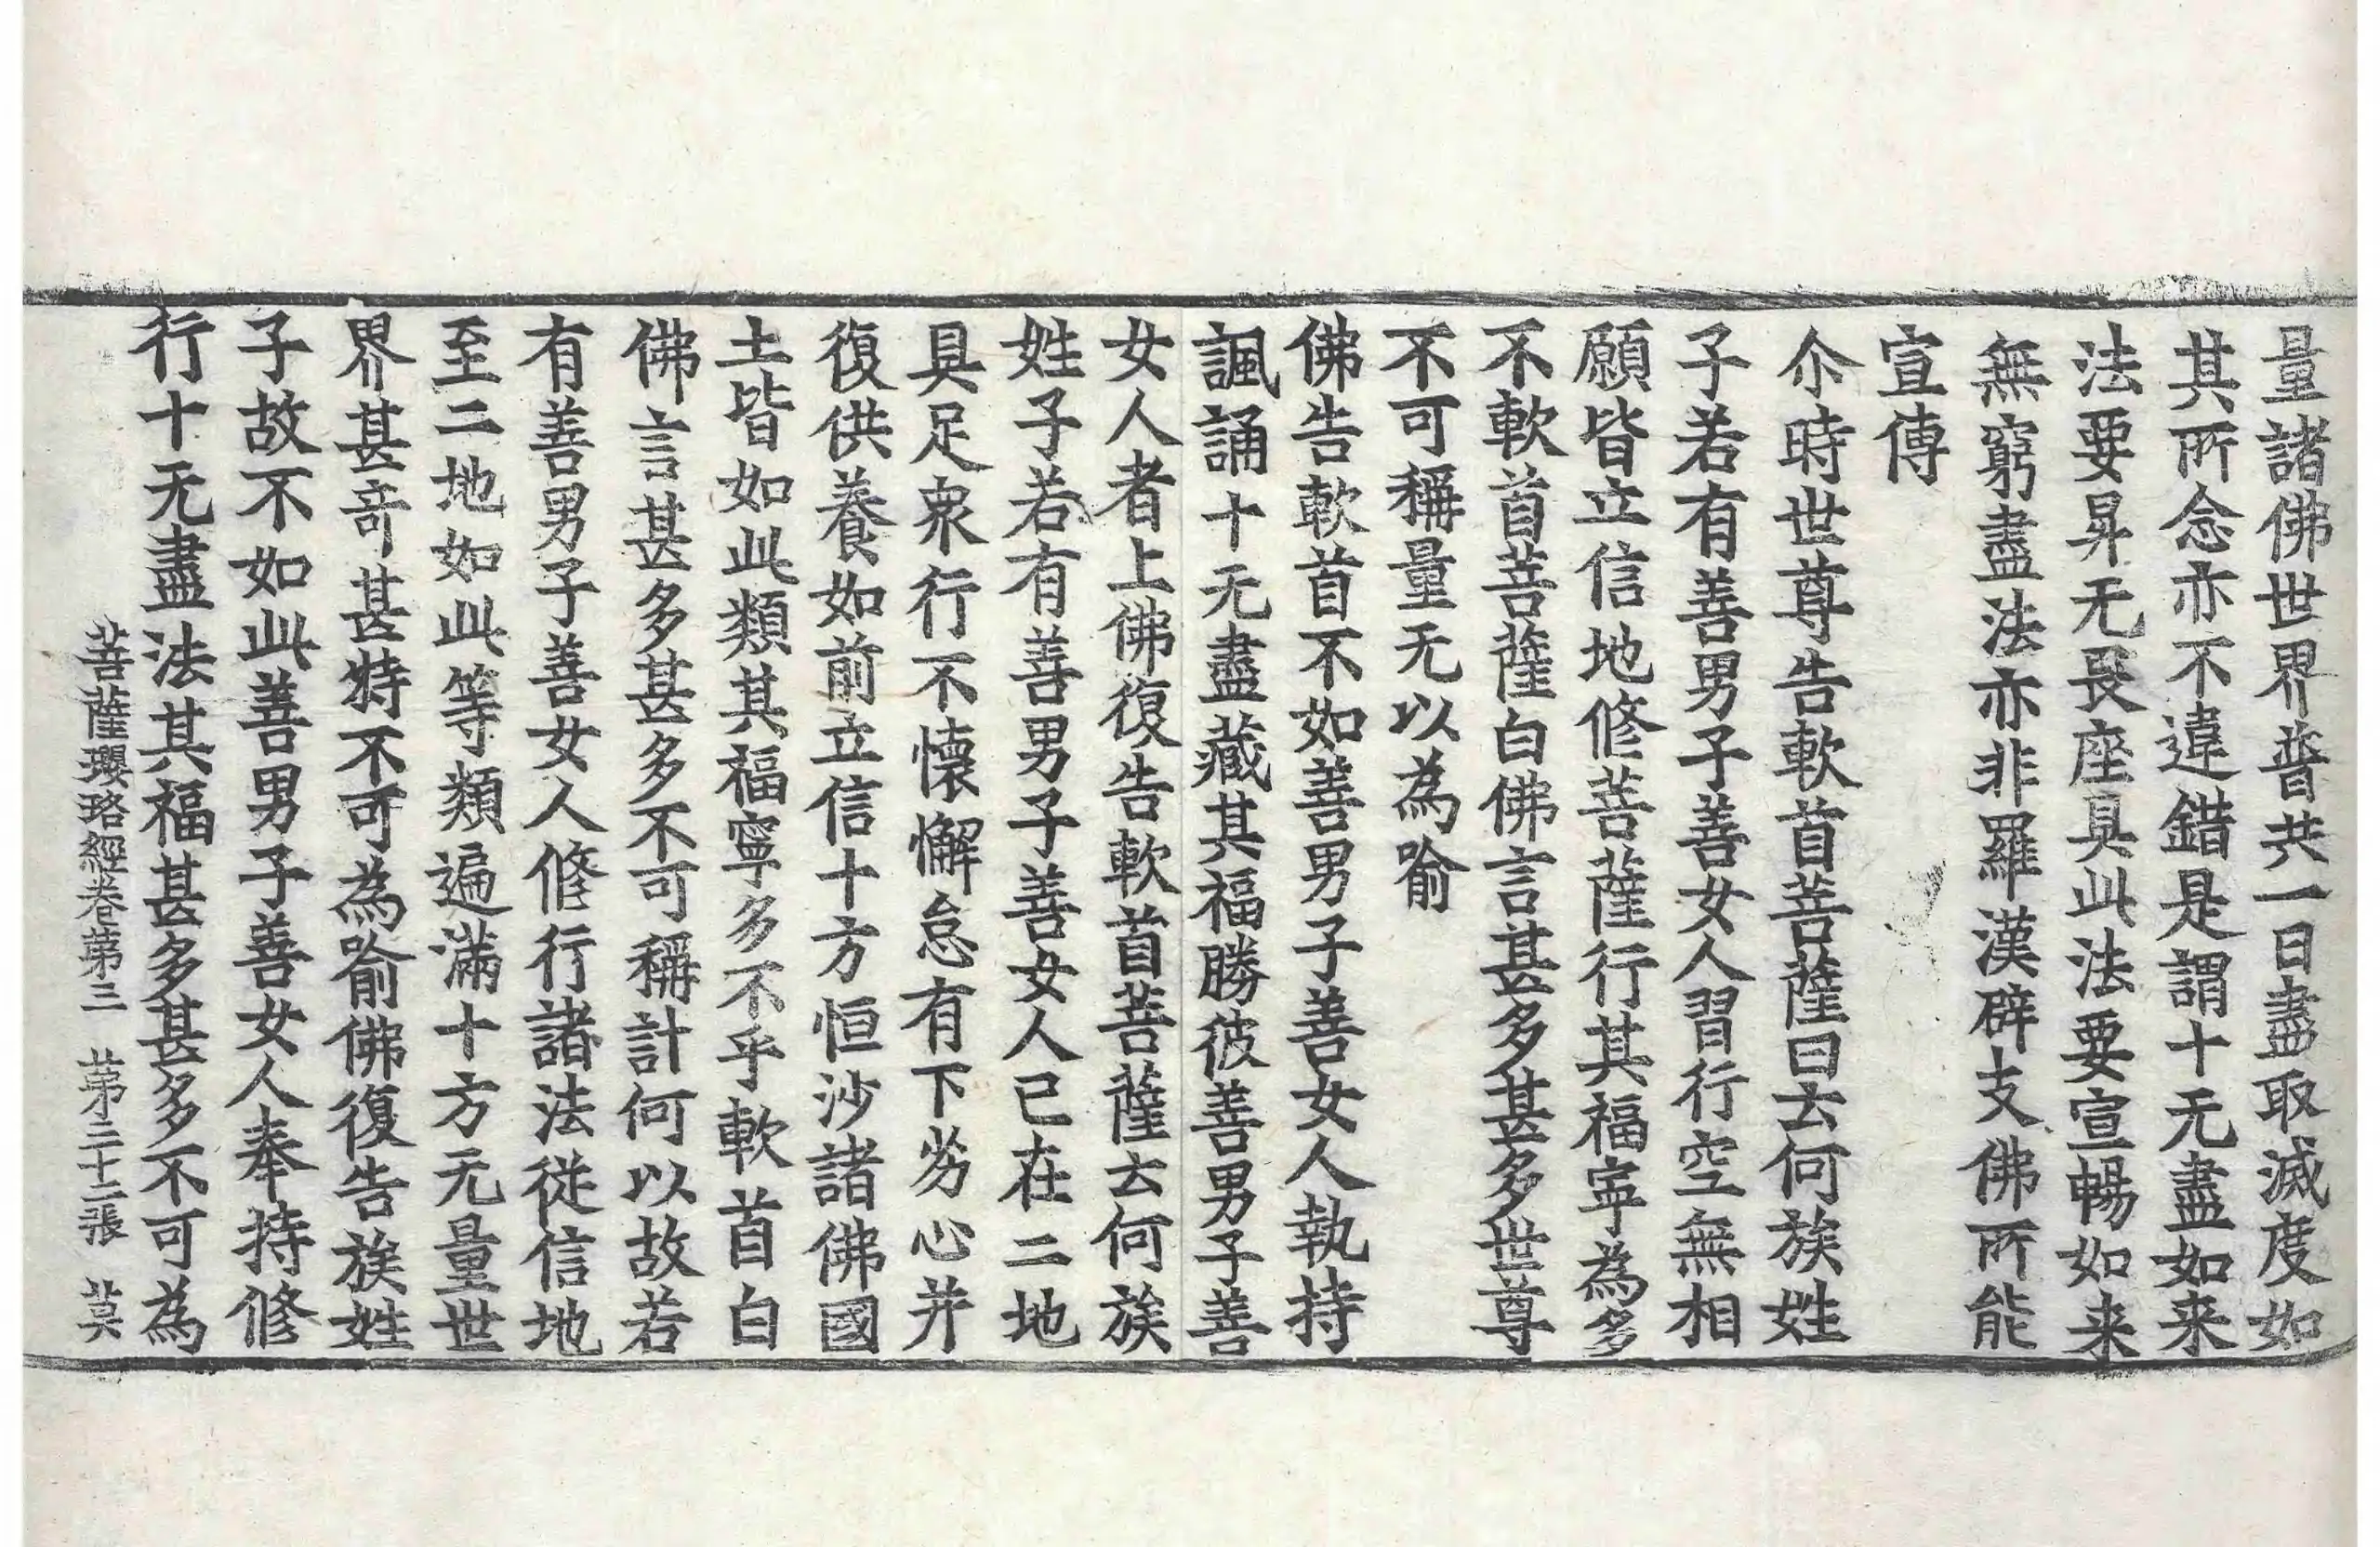 量諸佛世界普共一日盡取滅度如
其所念亦不違錯是謂十无盡如来
法要昇无畏座具此法要宣暢如来
無窮盡法亦非羅漢辟支佛所能
宣傳
尒時世尊告軟首菩薩曰云何族姓
子若有善男子善女人習行空無相
願皆立信地修菩薩行其福寧為多
不軟首菩薩白佛言甚多甚多世尊
不可稱量无以為喻
佛告軟首不如善男子善女人執持
諷誦十无盡藏其福勝彼善男子善
女人者上佛復告軟首菩薩云何族
姓子若有善男子善女人已在二地
具足衆行不懷懈怠有下劣心并
復供養如前立信十方恒沙諸佛國
土皆如此類其福寧多不乎軟首白
佛言甚多甚多不可稱計何以故若
有善男子善女人修行諸法從信地
至二地如此等類遍滿十方无量世
界甚奇甚特不可為喻佛復告族姓
子故不如此善男子善女人奉持修
行十无盡法其福甚多甚多不可為
菩薩瓔珞經卷第三 第二十二張 莫